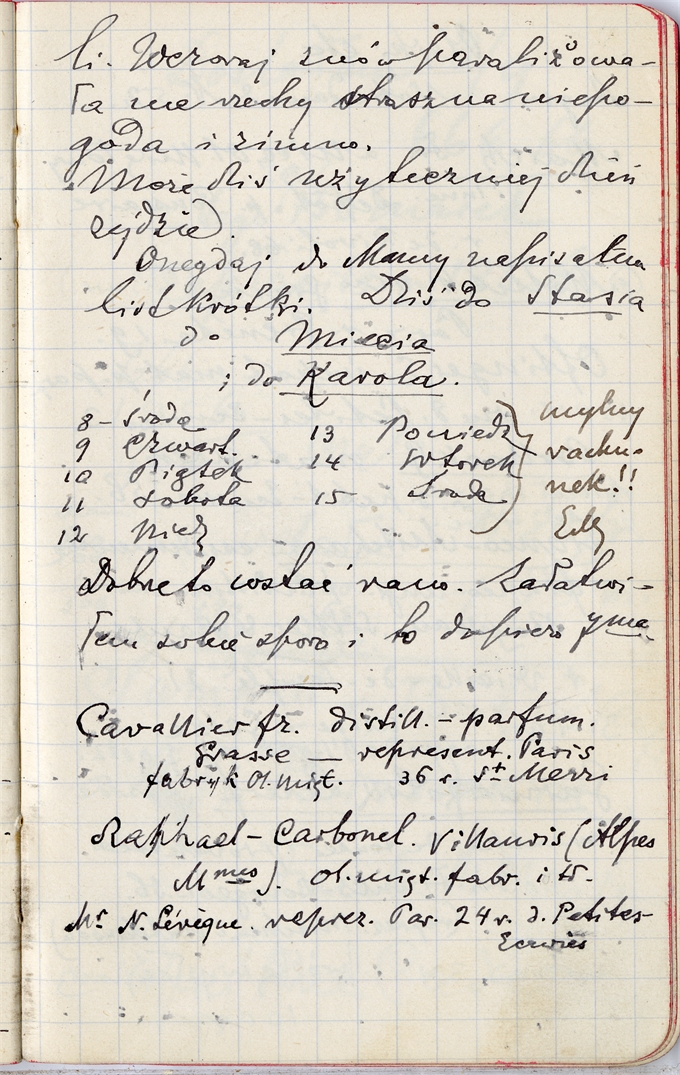 li. Wczoraj znów paraliżowa-
ła me ruchy straszna niepo-
goda i zimno.
Może dziś użyteczniej dzień
zejdzie.
Onegdaj do Mamy napisałem
list krótki. Dziś do Stasia
do Miecia
i do Karola.
8 - środa
9 czwart.
10 Piątek
11 sobota
12 Niedz
13 Poniedz
14 wtorek
15 środa
mylny
rachu-
nek!!
Dobrze to wstać rano. Załatwi-
łem sobie sporo i to dopiero 7ma.
Cavallier fr. distill. - parfum.
Grasse — represent. Paris
fabryk Ol. mięt. 36 r. St Merri
Raphael - Carbonel. Villauris (Alpes
Mmes). Ol. mięt. fabr. i
Mr N. Lévêque. reprez. Par. 24 r. d. Petites-
Ecuries